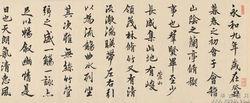 永和九年歲在癸丑
暮春之初會于會稽
山陰之蘭亭脩禊
事也群賢畢至少
崇山
長咸集此地有峻
領茂林脩竹又有清
流激湍暎帶左右引
以為流觴曲水列坐
其次雖無絲竹管
足以暢叙幽情是
日也天朗氣清惠風